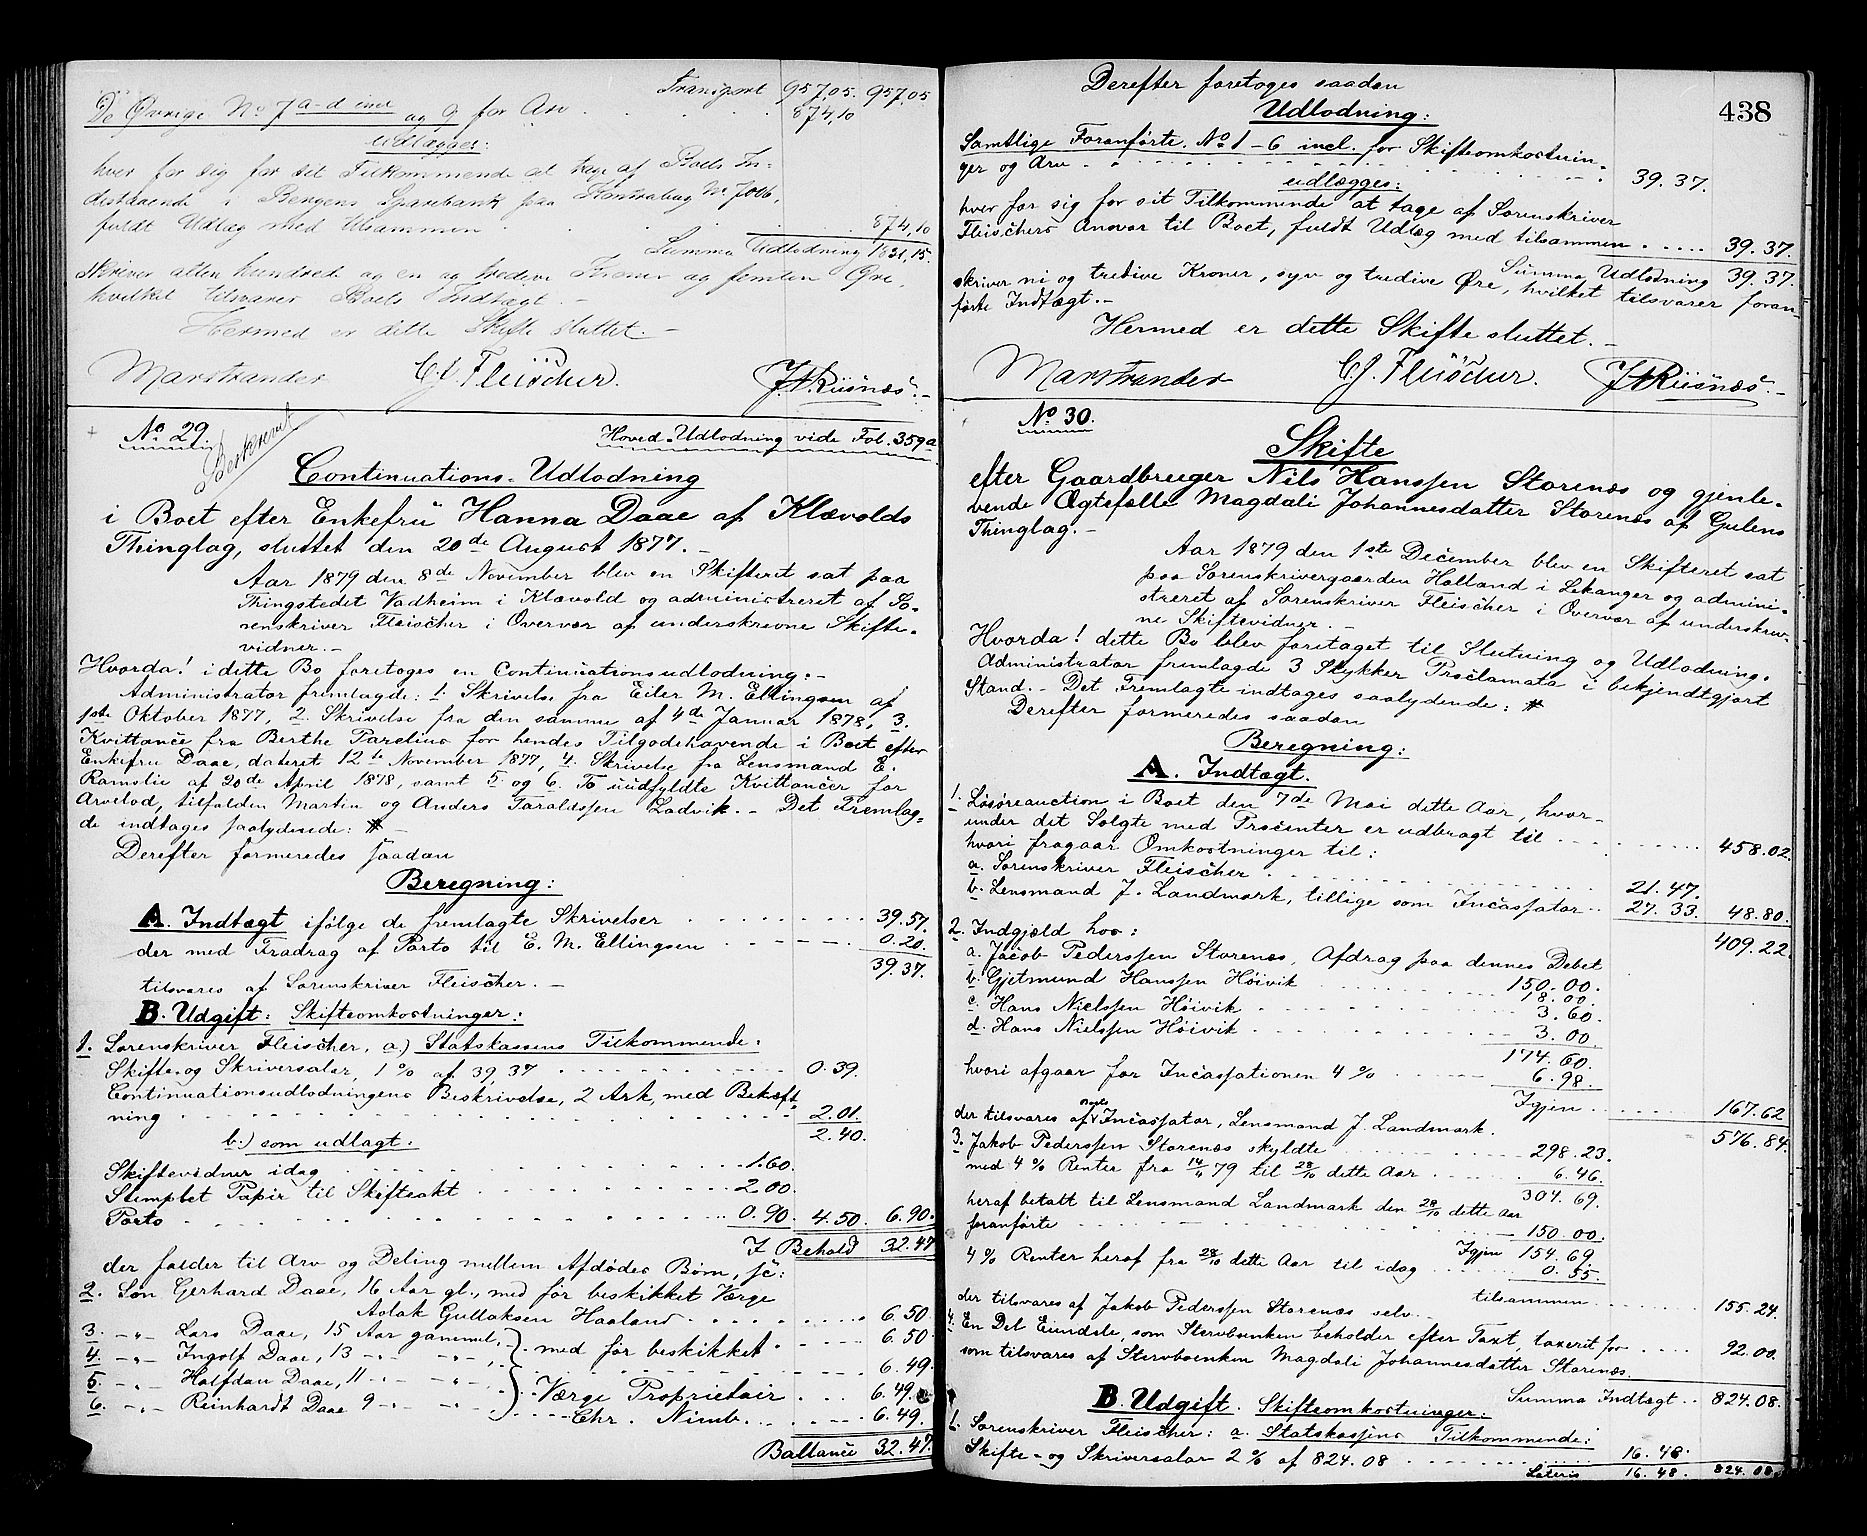 Transport 957,05. 957,05
De Øvrige No 7 a-d incl og 9 for Arv . . . . . 874,10
udlægges:
hver for sig for sit Tilkommende at tage af Boets In-
destaaende i Bergens Sparebank paa Contrabog No 7006,
fuldt Udlæg med tilsammen . . . . . 874,10
Summa Udlodning 1831,15.
skriver atten hundrede og en og tredive Kroner og femten Øre,
hvilket tilsvarer Boets Indtægt. –
Hermed er dette Skifte sluttet. –
Marstrander C. J. Fleischer. J. A. Riisnæs. –
No 29. Beskrevet Hoved-Udlodning vide Fol. 359a
Continuations-Udlodning
i Boet efter Enkefru Hanna Daae af Klævolds
Thinglag, sluttet den 20de August 1877. –
Aar 1879 den 8de November blev en Skifteret sat paa
Thingstedet Vadheim i Klævold og administreret af So-
renskriver Fleischer i Overvær af underskrevne Skifte-
vidner. –
Hvorda! i dette Bo foretoges en Continuationsudlodning. –
Administrator fremlagde: 1. Skrivelse fra Eiler M. Ellingsen af
1ste Oktober 1877, 2. Skrivelse fra den samme af 4de Januar 1878, 3.
Kvittance fra Berthe Farelius for hendes Tilgodehavende i Boet efter
Enkefru Daae, dateret 12te November 1877, 4. Skrivelse fra Lensmand E.
Ramslie af 20de April 1878, samt 5 og 6. To uudfyldte Kvittancer for
Arvelod, tilfalden Martin og Anders Taraldssen Ladvik. – Det Fremlag-
de indtages saalydende: # –
Derefter formeredes saadan
Beregning:
A. Indtægt ifølge de fremlagte Skrivelser . . . . . 39.57.
der med Fradrag af Porto til E. M. Ellingsen . . . . . 0.20.
39.37.
tilsvares af Sorenskriver Fleischer. –
B. Udgift: Skifteomkostninger:
1. Sorenskriver Fleischer, a) Statskassens Tilkommende.
Skifte- og Skriversalær, 1% af 39,37 . . . . . 0.39.
Continuationsudlodningens Beskrivelse, 2 Ark, med Bekæft-
ning . . . . . 2.01.
2.40.
b.) som udlagt.
Skiftevidner idag . . . . . 1.60.
Stemplet Papir til Skifteakt . . . . . 2.00.
Porto . . . . . 0.90. 4.50. 6.90.
I Behold 32.47
der falder til Arv og Deling mellem Afdødes Børn, sc:
2. Søn Gerhard Daae, 16 Aar gl., med før beskikket Værge
Aslak Gullaksen Haaland . . . . . 6.50
3. –"– Lars Daae, 15 Aar gammel, } med før beskikket . . . . . 6.50.
4. –"– Ingolf Daae, 13 –"– –"–, . . . . . 6.49.
5. –"– Halfdan Daae, 11 –"– –"–, } Værge Proprietair . . . 6.49.
6. –"– Reinhardt Daae 9 –"– –"– . . . Chr. Nimb. . . . . 6.49.
Ballance 32.47.
438
Derefter foretoges saadan
Udlodning:
Samtlige Foranførte. No 1–6 incl. for Skifteomkostnin-
ger og Arv . . . . . 39.37.
udlægges:
hver for sig for sit Tilkommende at tage af Sorenskriver
Fleischers Ansvar til Boet, fuldt Udlæg med tilsammen . . . . . 39.37.
Summa Udlodning 39.37.
skriver ni og tredive Kroner, syv og tredive Øre, hvilket tilsvarer foran-
førte Indtægt. –
Hermed er dette Skifte sluttet. –
Marstrander C. J. Fleischer. J. A. Riisnæs. –
No 30.
Skifte
efter Gaardbruger Nils Hanssen Storenæs og gjenle-
vende Ægtefælle Magdali Johannesdatter Storenæs af Gulens
Thinglag. –
Aar 1879 den 1ste December blev en Skifteret sat
paa Sorenskrivergaarden Holland i Lekanger og admini-
streret af Sorenskriver Fleischer i Overvær af underskrev-
ne Skiftevidner. –
Hvorda! dette Bo blev foretaget til Slutning og Udlodning.
Administrator fremlagde 3 Stykker Proclamata i bekjendtgjort
Stand. – Det Fremlagte indtages saalydende: #
Derefter formeredes saadan
Beregning:
A. Indtægt.
1. Løsøreauction i Boet den 7de Mai dette Aar, hvor-
under det Solgte med Procenter er udbragt til . . . . . 458.02.
hvori fragaar Omkostninger til:
a. Sorenskriver Fleischer . . . . . 21.47.
b. Lensmand J. Landmark, tillige som Incassator . . 27.33. 48.80.
409.22
2. Indgjæld hos:
a. Jacob Pederssen Storenæs, Afdrag paa dennes Debet
150.00.
b. Gjetmund Hanssen Høivik . . . . . 18.00.
c. Hans Nielssen Høivik . . . . . 3.60.
d. Hans Nielssen Høivik . . . . . 3.00
174.60.
hvori afgaar for Incassationen 4% . . . . . 6.98.
Igjen . . . . . 167.62
der tilsvares af Boets Incassator, Lensmand J. Landmark.
576.84.
3. Jakob Pederssen Storenæs skyldte . . . . . 298.23.
med 4% Renter fra 14/4 79 til 28/10 dette Aar . . . . . 6.46.
304.69.
heraf betalt til Lensmand Landmark den 28/10 dette Aar
foranførte . . . . . 150.00.
Igjen 154.69.
4% Renter heraf fra 28/10 dette Aar til idag . . . . . 0.55.
tilsammen . . . . . 155.24.
der tilsvares af Jakob Pederssen Storenæs selv.
4. En Del Eiendele, som Stervboenken beholder efter Taxt, taxeret for . . . . 92.00.
som tilsvares af Stervboenken Magdali Johannesdatter Storenæs.
Summa Indtægt . . 824.08.
B. Udgift. Skifteomkostninger:
1. Sorenskriver Fleischer: a. Statskassens Tilkommende:
Skifte- og Skriversalær 2% af 824.08 . . . . . 16.48.
Lateris 16.48. 824.08.